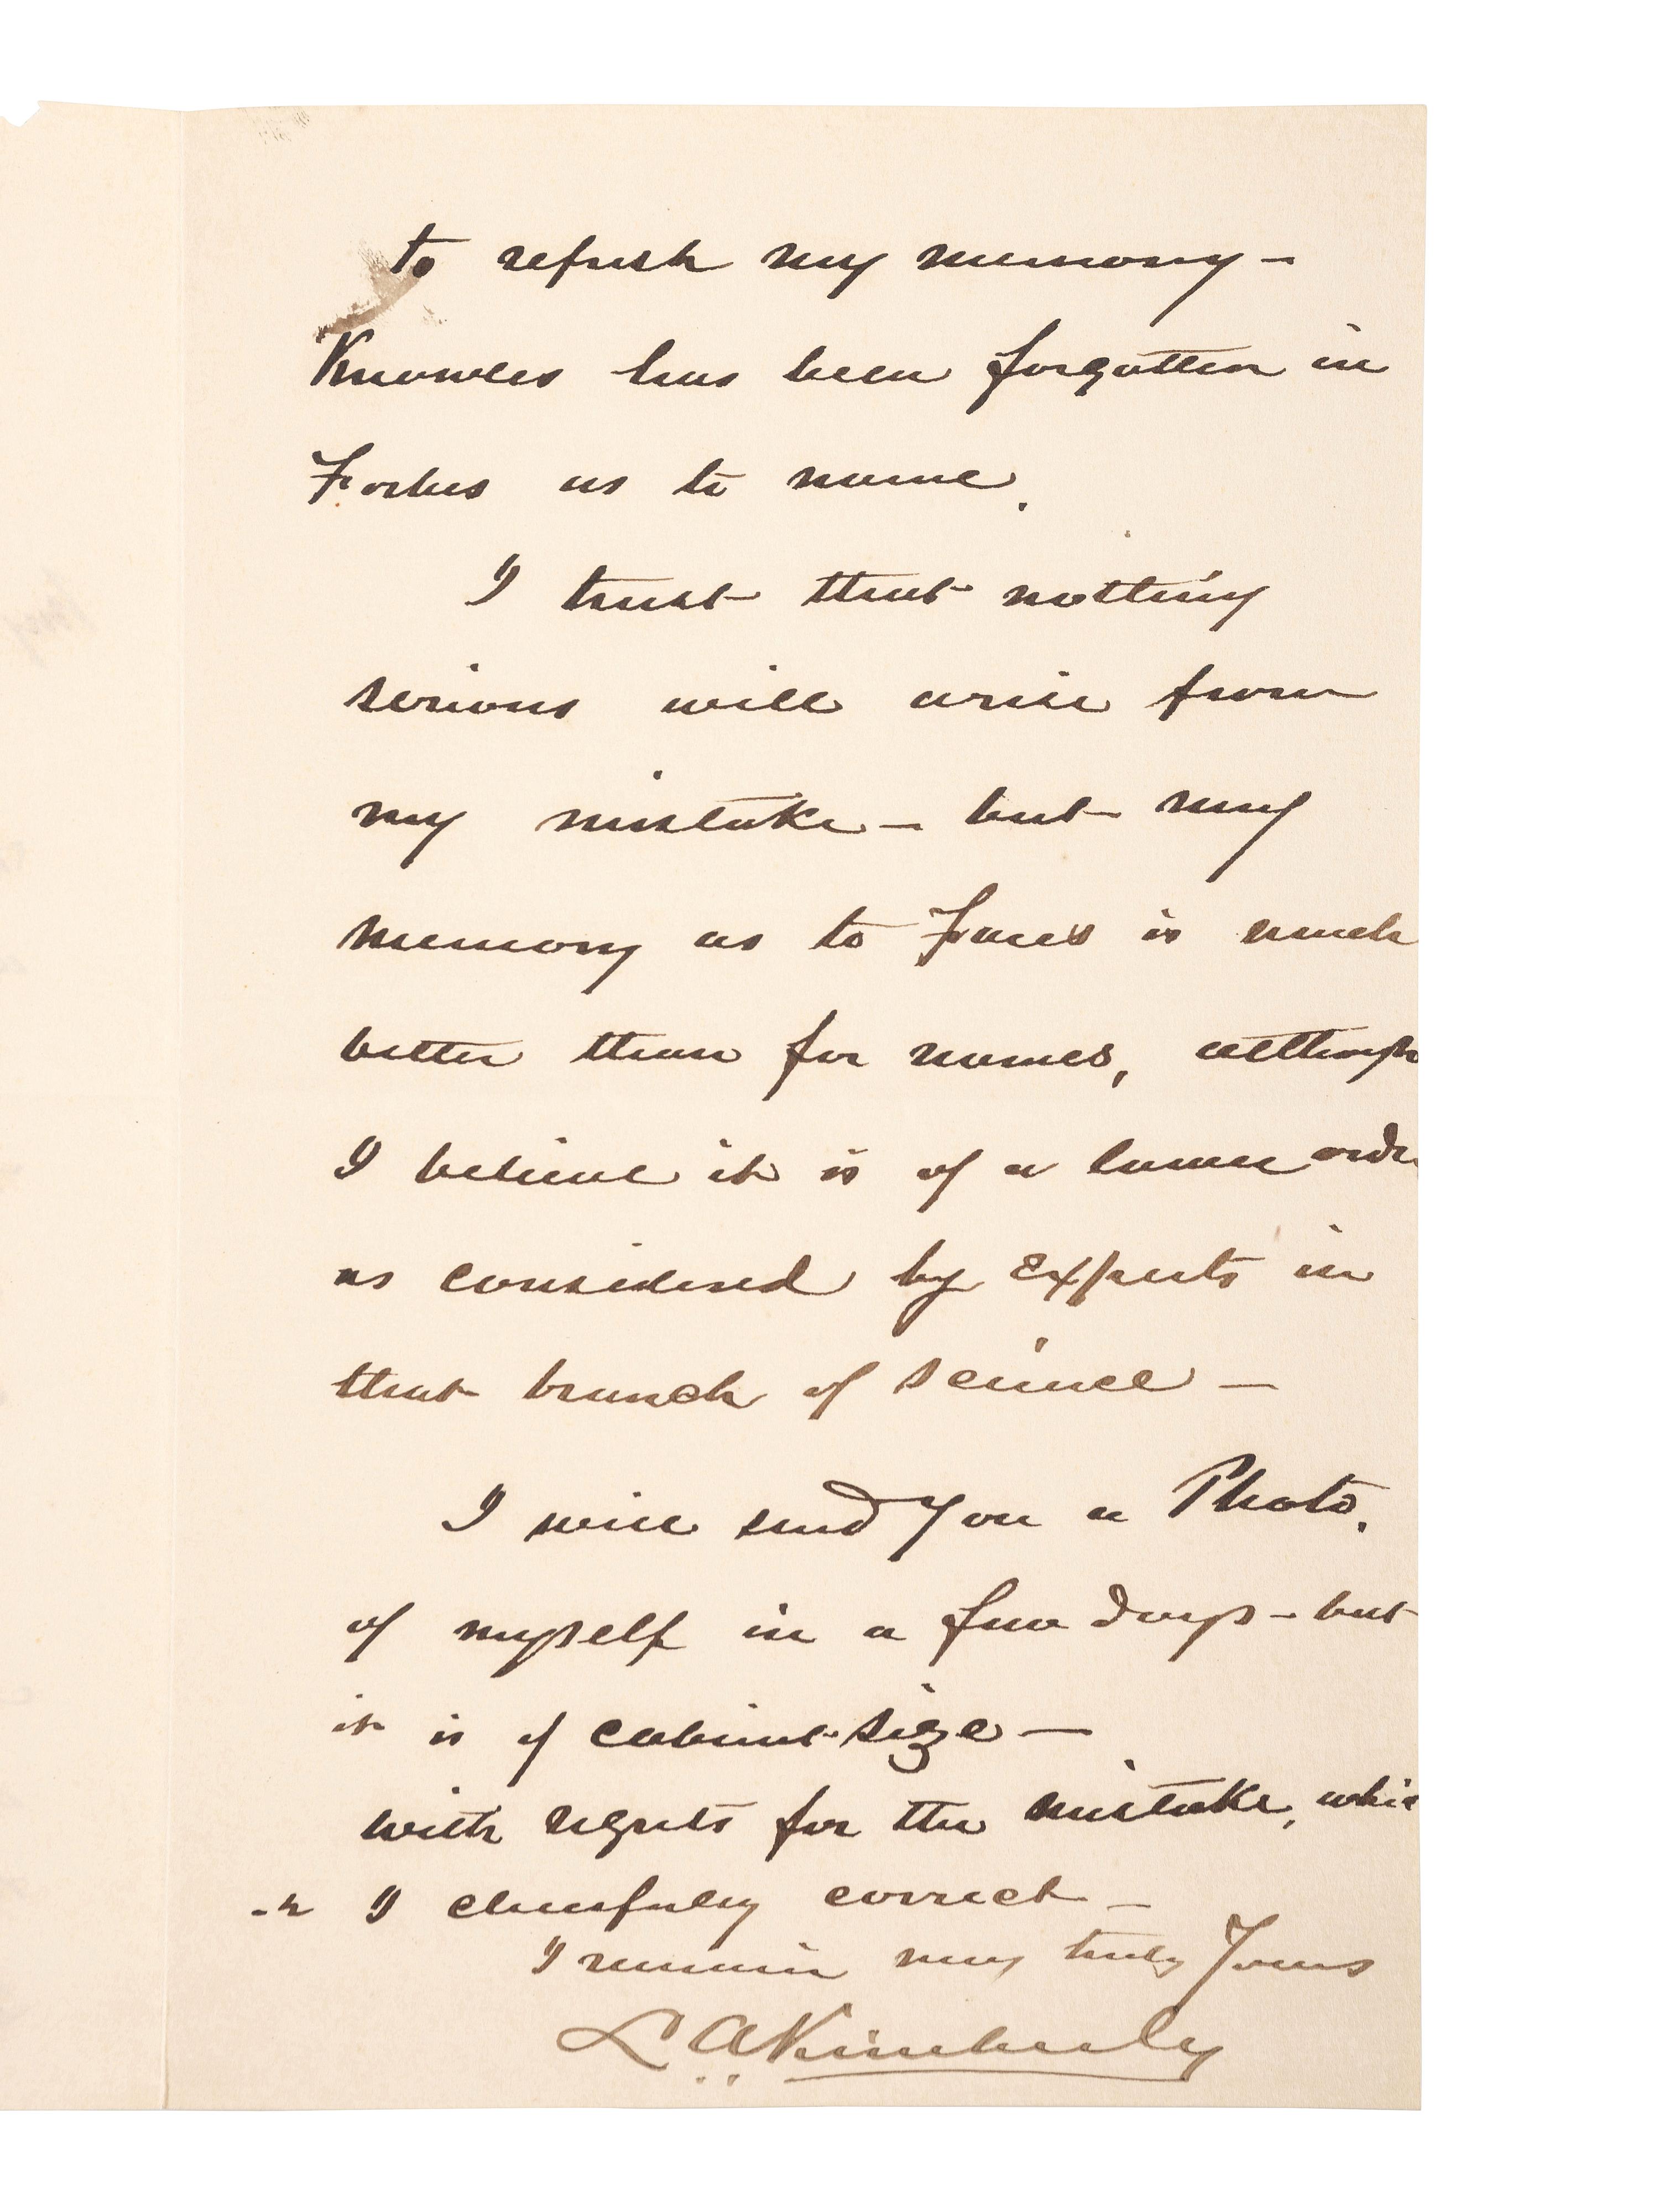 to refresh my memory -
Knowles has been forgotten in
Forbes as to name.
I trust that nothing
serious will arise from
my mistake - but my
memory as to Faces is much
better than for names, although
I believe it is of a lower orde
as considered by Experts in
that branch of science -
I will send you a Photo.
of myself in a few days - but
it is of cabinet size -
with regrets for the mistake, whic
-h I cheerfully correct -
I remain very truly Yours
L A Kimberly